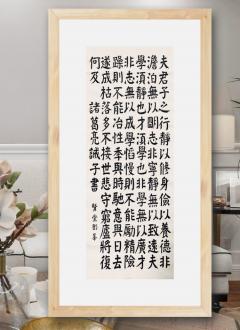 夫君子之行靜以修身儉以養德非
澹泊無以明志非寧靜無以致遠夫
學須靜也才須學也非學無以廣才
非志無以成學慆慢則不能勵精險
躁則不能冶性秊與時馳意與日去
遂成枯落多不接世悲守窮廬將復
何及 諸葛亮誡子書